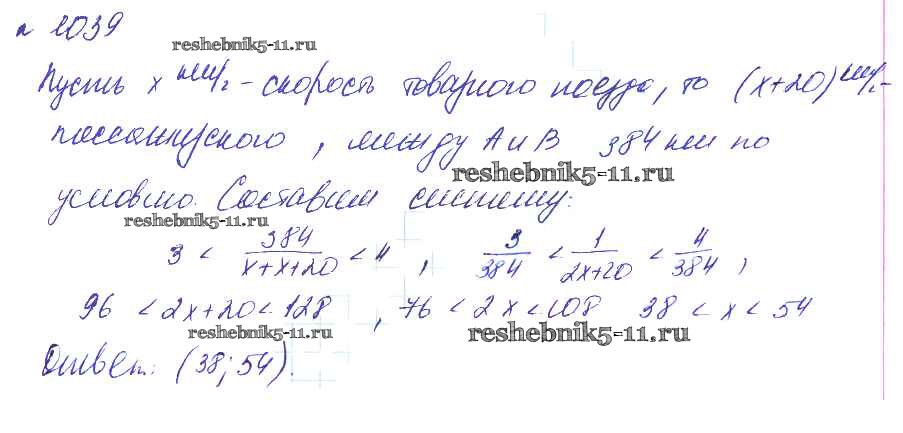 № 1039
reshebnik5-11.ru
Пусть x км/ч - скорость товарного поезда, то (x+20) км/ч -
пассажирского, между A и B 384 км по
reshebnik5-11.ru
условию. Составим систему:
reshebnik5-11.ru
3 < 384/(x+x+20) < 4, 3/384 < 1/(2x+20) < 4/384,
96 < 2x+20 < 128, 76 < 2x < 108 38 < x < 54
reshebnik5-11.ru reshebnik5-11.ru
Ответ: (38; 54).